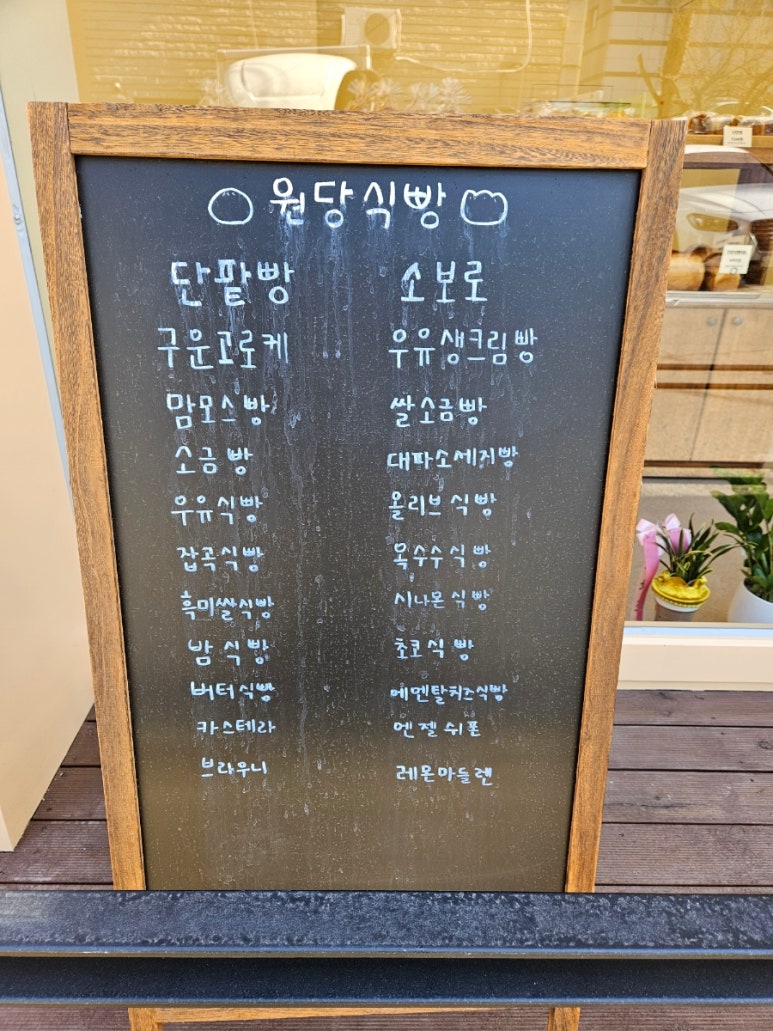 원당식빵
단팥빵 소보로
구운고로케 우유생크림빵
맘모스빵 쌀소금빵
소금빵 대파소세지빵
우유식빵 올리브식빵
잡곡식빵 옥수수식빵
흑미쌀식빵 시나몬식빵
밤식빵 초코식빵
버터식빵 에멘탈치즈식빵
카스테라 엔젤쉬폰
브라우니 레몬마들렌